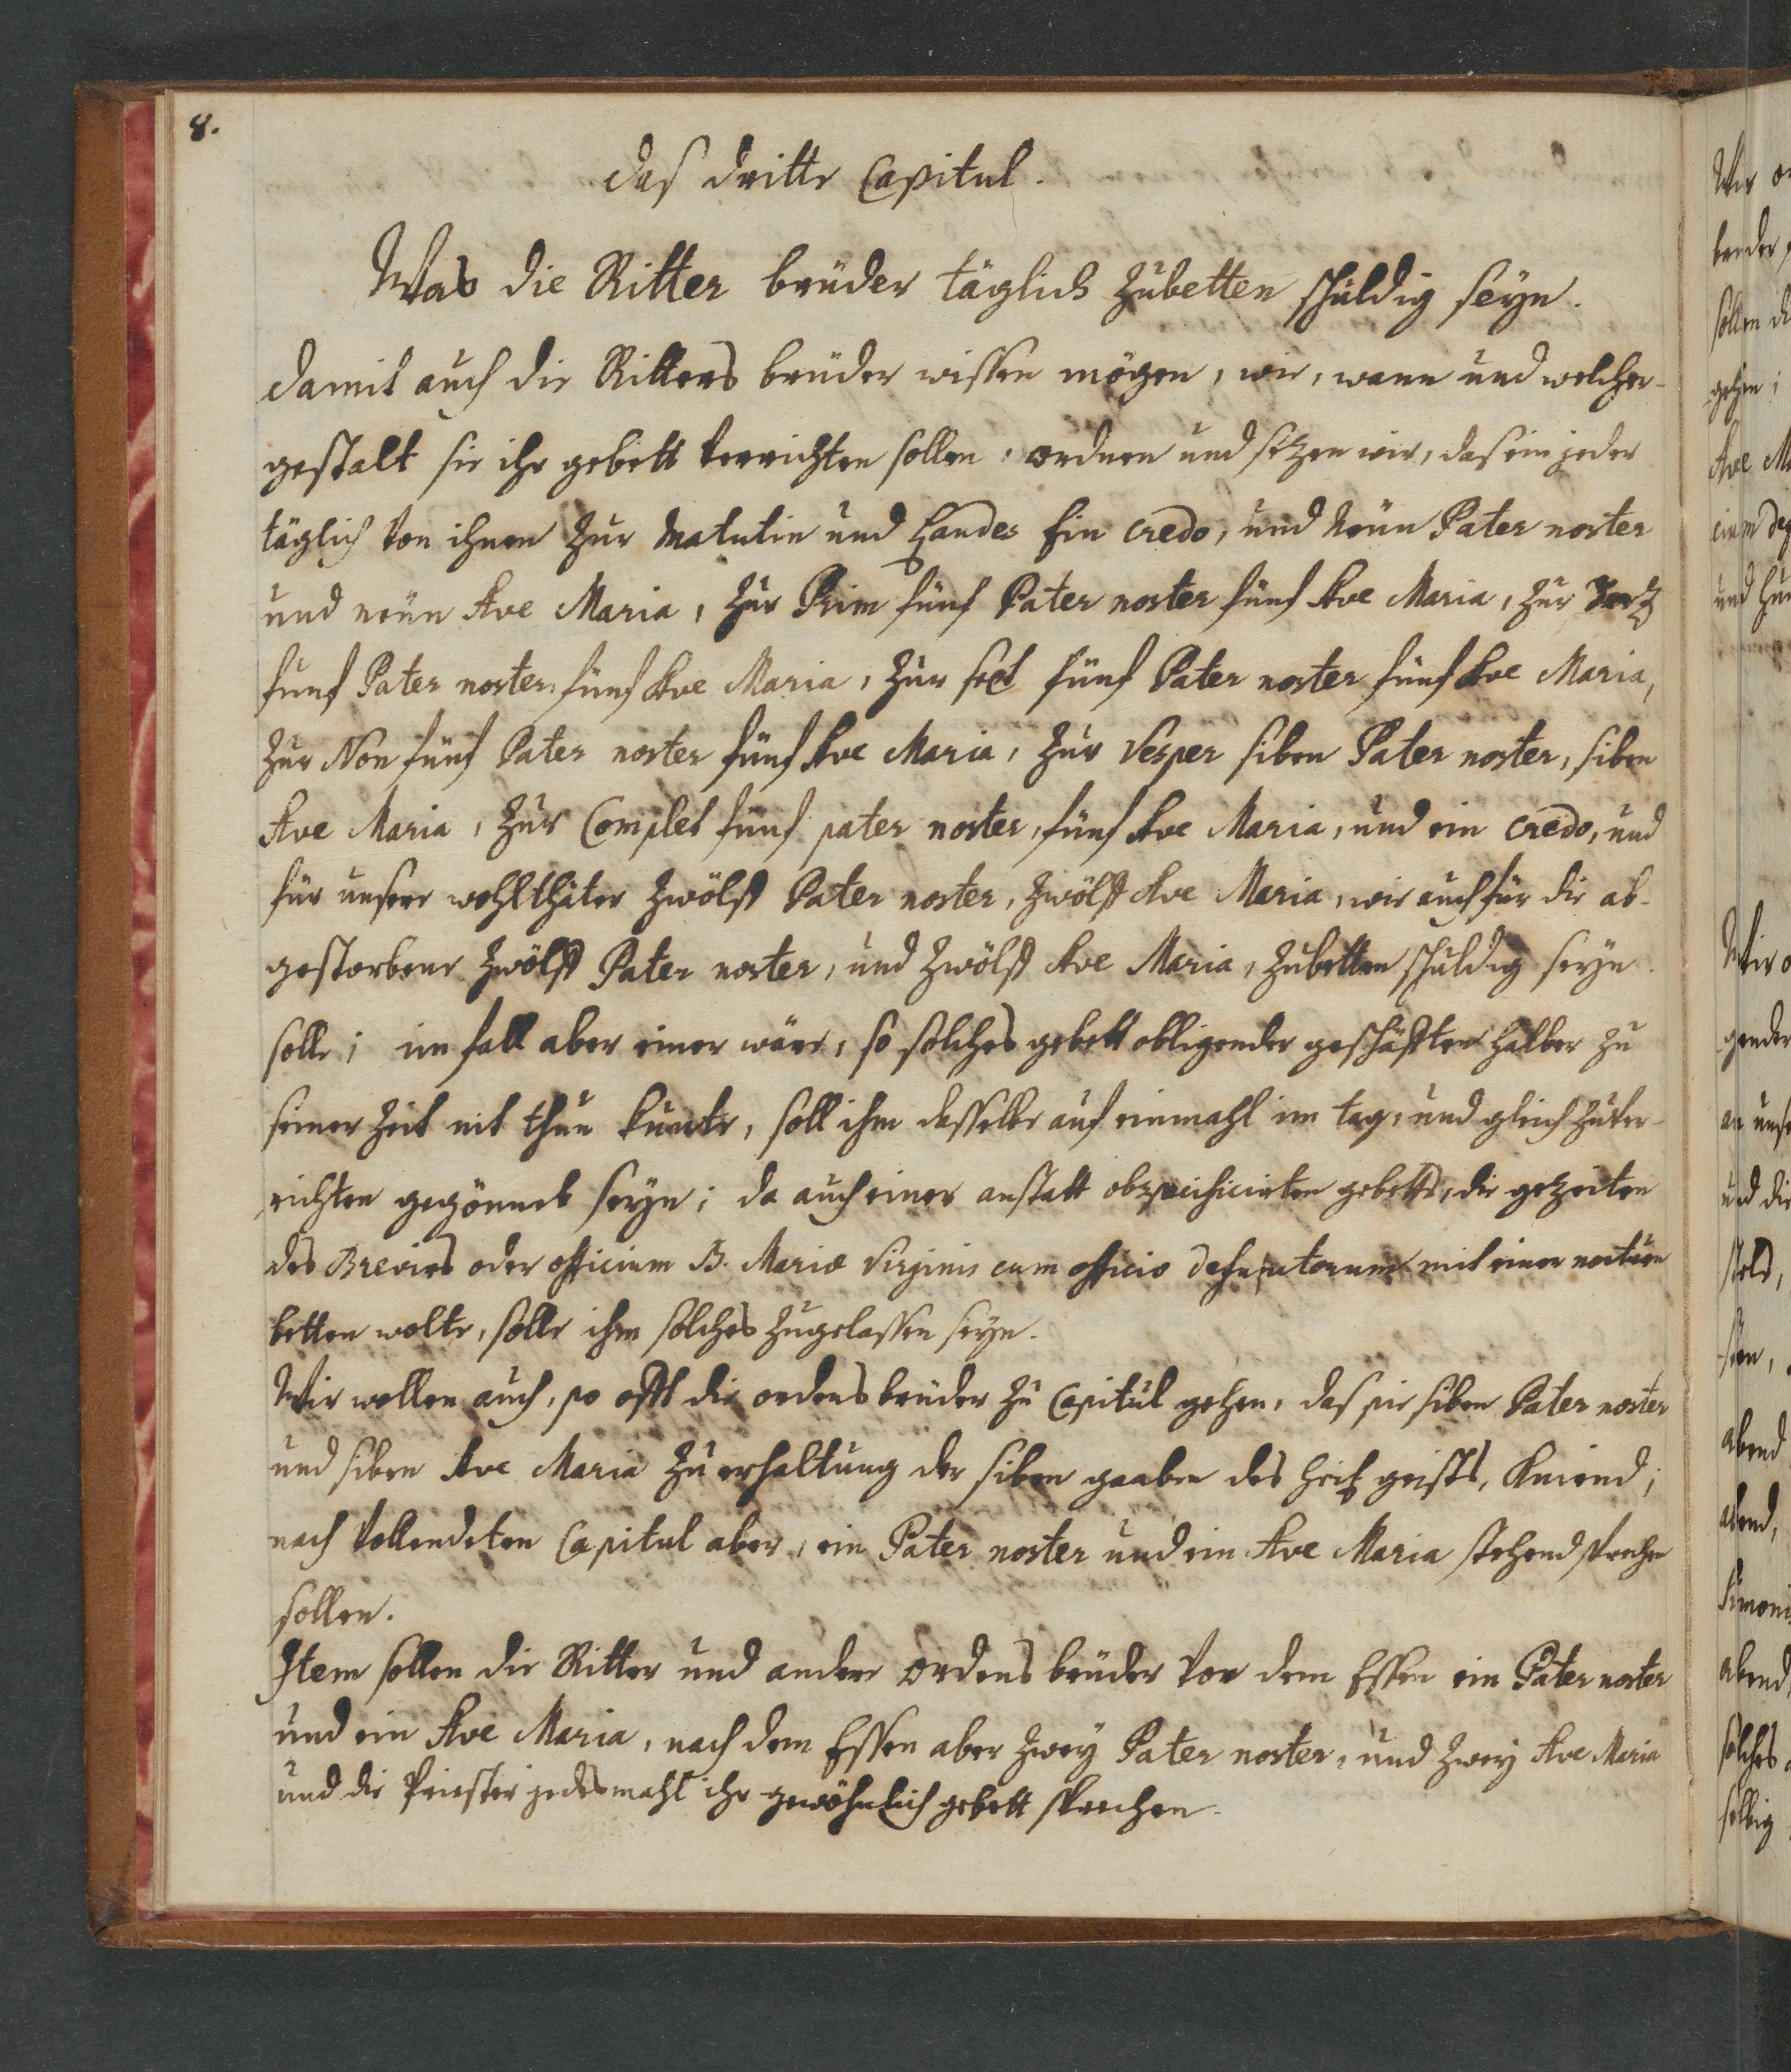 8.
das dritte Capitul.
Was die Ritter brüder täglich zubetten schuldig seyn.
damit auch die Ritters brüder wissen mögen, wie, wann und welcher-
gestalt sie ihr gebett verrichten sollen, ordnen und sezen wir, das ein jeder
täglich von ihnen zur Matutin und Laudes Ein Credo, und Neün Pater noster
und neün Ave Maria, zur Prim fünf Pater noster fünf Ave Maria, zur Terz
fünf Pater noster, fünf Ave Maria, zur sext fünf Pater noster fünf Ave Maria,
zur Non fünf Pater noster fünf Ave Maria, zur Vesper siben Pater noster, siben
Ave Maria, zur Complet fünf pater noster, fünf Ave Maria, und ein Credo, und
für unsere wohlthäter zwölff Pater noster, zwölff Ave Maria, wie auch für die ab-
gestorbene zwölff Pater noster, und zwölff Ave Maria, zubetten schuldig seyn
solle; im fall aber einer wäre, so solches gebett obligender geschäfften halber zu
seiner zeit nit thun kunte, soll ihm dasselbe auf einmahl im tag, und gleich zuver-
richten gegönnet seyn; da auch einer anstatt obspecificirten gebetts, die gezeiten
des Breviers oder officium B. Mariæ Virginis cum officio defunctorum mit einer noctuen
betten wolte, solle ihm solches zugelassen seyn.
Wir wollen auch, so offt die ordens brüder zu Capitul gehen, das sie siben Pater noster
und siben Ave Maria zu erhaltung der siben gaaben des heil. geists, kniend;
nach vollendeten Capitul aber, ein Pater noster und ein Ave Maria stehend sprechen
sollen.
Item sollen die Ritter und andere ordens brüder vor dem Essen ein Pater noster
und ein Ave Maria, nach dem Essen aber zwey Pater noster, und zwey Ave Maria
und die Priester jedesmahl ihr gewöhnlich gebett sprechen.